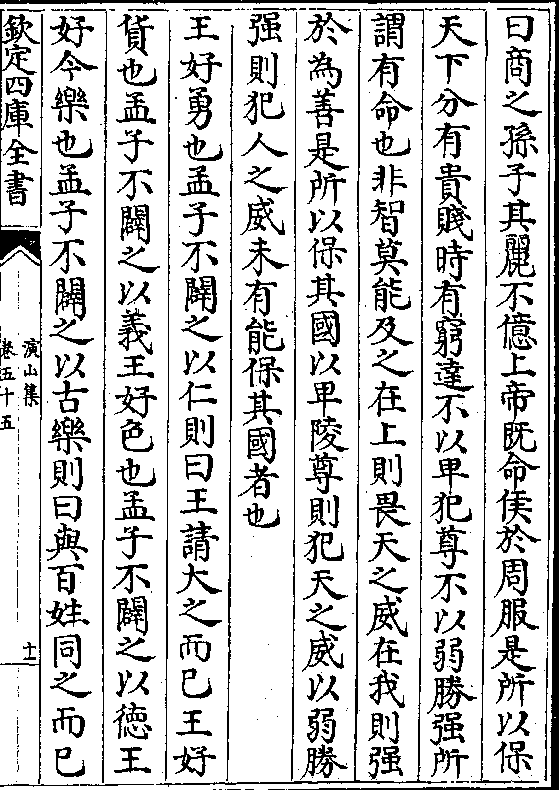 曰商之孫子其麗不億上帝既命侯於周服是所以保
天下分有貴賤時有窮達不以卑犯尊不以弱勝强所
謂有命也非智莫能及之在上則畏天之威在我則强
於為善是所以保其國以卑陵尊則犯天之威以弱勝
强則犯人之威未有能保其國者也
王好勇也孟子不闢之以仁則曰王請大之而已王好
貨也孟子不闢之以義王好色也孟子不闢之以德王
好今樂也孟子不闢之以古樂則曰與百姓同之而已
欽定四庫全書
演山集
卷五十五
十一